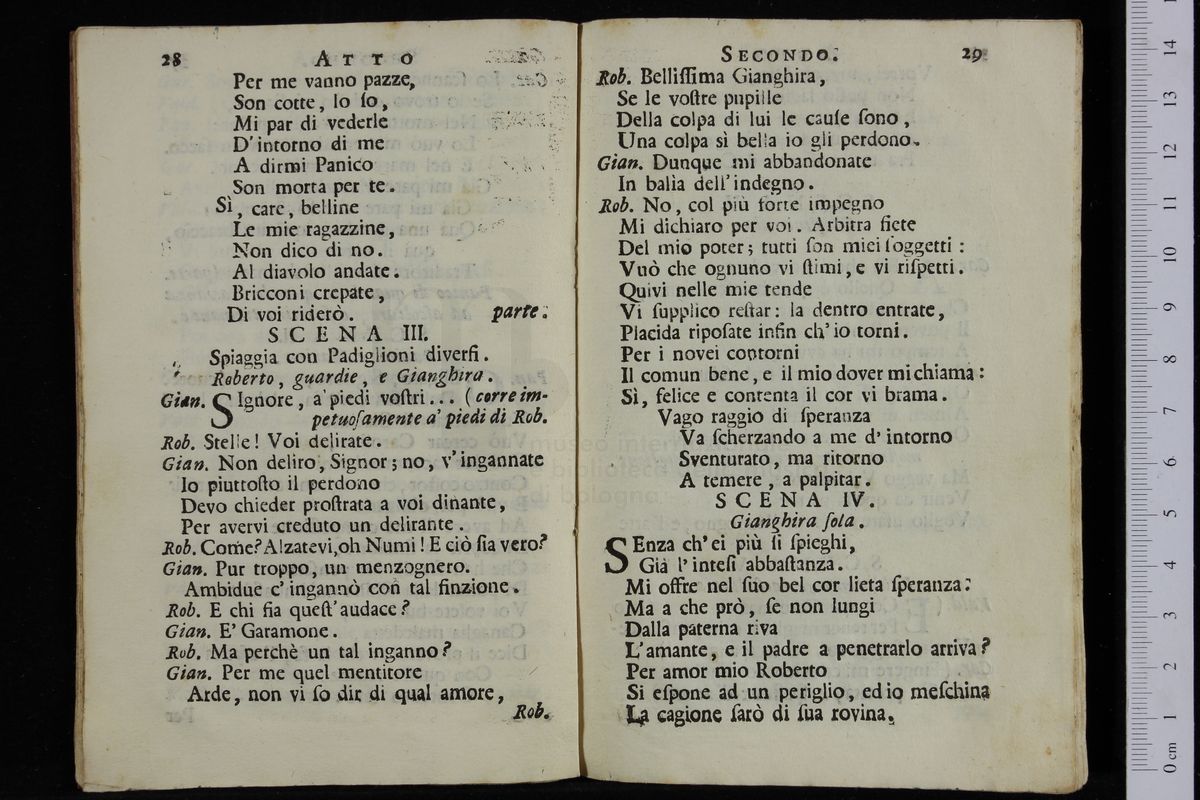 28 ATTO
Per me vanno pazze,
Son cotte, lo ſo,
Mi par di vederle
D'intorno di me
A dirmi Panico
Son morta per te.
Sì, care, belline
Le mie ragazzine,
Non dico di no.
Al diavolo andate.
Bricconi crepate,
Di voi riderò. parte.
SCENA III.
Spiaggia con Padiglioni diverſi.
Roberto, guardie, e Gianghira.
Gian. SIgnore, a' piedi voſtri... (corre im-
petuoſamente a' piedi di Rob.
Rob. Stelle! Voi delirate.
Gian. Non deliro, Signor; no, v'ingannate
Io piuttoſto il perdono
Devo chieder proſtrata a voi dinante,
Per avervi creduto un delirante.
Rob. Come? Alzatevi, oh Numi! E ciò ſia vero?
Gian. Pur troppo, un menzognero.
Ambidue c'ingannò con tal finzione.
Rob. E chi fia queſt'audace?
Gian. E' Garamone.
Rob. Ma perchè un tal inganno?
Gian. Per me quel mentitore
Arde, non vi ſo dir di qual amore,
Rob.
SECONDO. 29
Rob. Belliſſima Gianghira,
Se le voſtre pupille
Della colpa di lui le cauſe ſono,
Una colpa sì bella io gli perdono.
Gian. Dunque mi abbandonate
In balìa dell'indegno.
Rob. No, col più forte impegno
Mi dichiaro per voi. Arbitra ſiete
Del mio poter; tutti ſon miei ſoggetti:
Vuò che ognuno vi ſtimi, e vi riſpetti.
Quivi nelle mie tende
Vi ſupplico reſtar: la dentro entrate,
Placida ripoſate infin ch'io torni.
Per i novei contorni
Il comun bene, e il mio dover mi chiama:
Sì, felice e contenta il cor vi brama.
Vago raggio di ſperanza
Va ſcherzando a me d'intorno
Sventurato, ma ritorno
A temere, a palpitar.
SCENA IV.
Gianghira ſola.
SEnza ch'ei più ſi ſpieghi,
Già l'inteſi abbaſtanza.
Mi offre nel ſuo bel cor lieta ſperanza:
Ma a che prò, ſe non lungi
Dalla paterna riva
L'amante, e il padre a penetrarlo arriva?
Per amor mio Roberto
Si eſpone ad un periglio, ed io meſchina
La cagione ſarò di ſua rovina.
museo
biblioteca
di bologna
0 cm 1 2 3 4 5 6 7 8 9 10 11 12 13 14